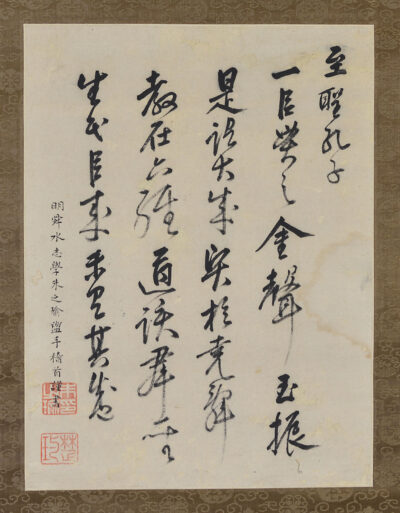 至聖孔子
一以貫之金聲玉振
是謂大成賢於堯舜
教在六經道誤群聖
生民以來未見其盛
明舜水志學朱之瑜盥手稽首謹書